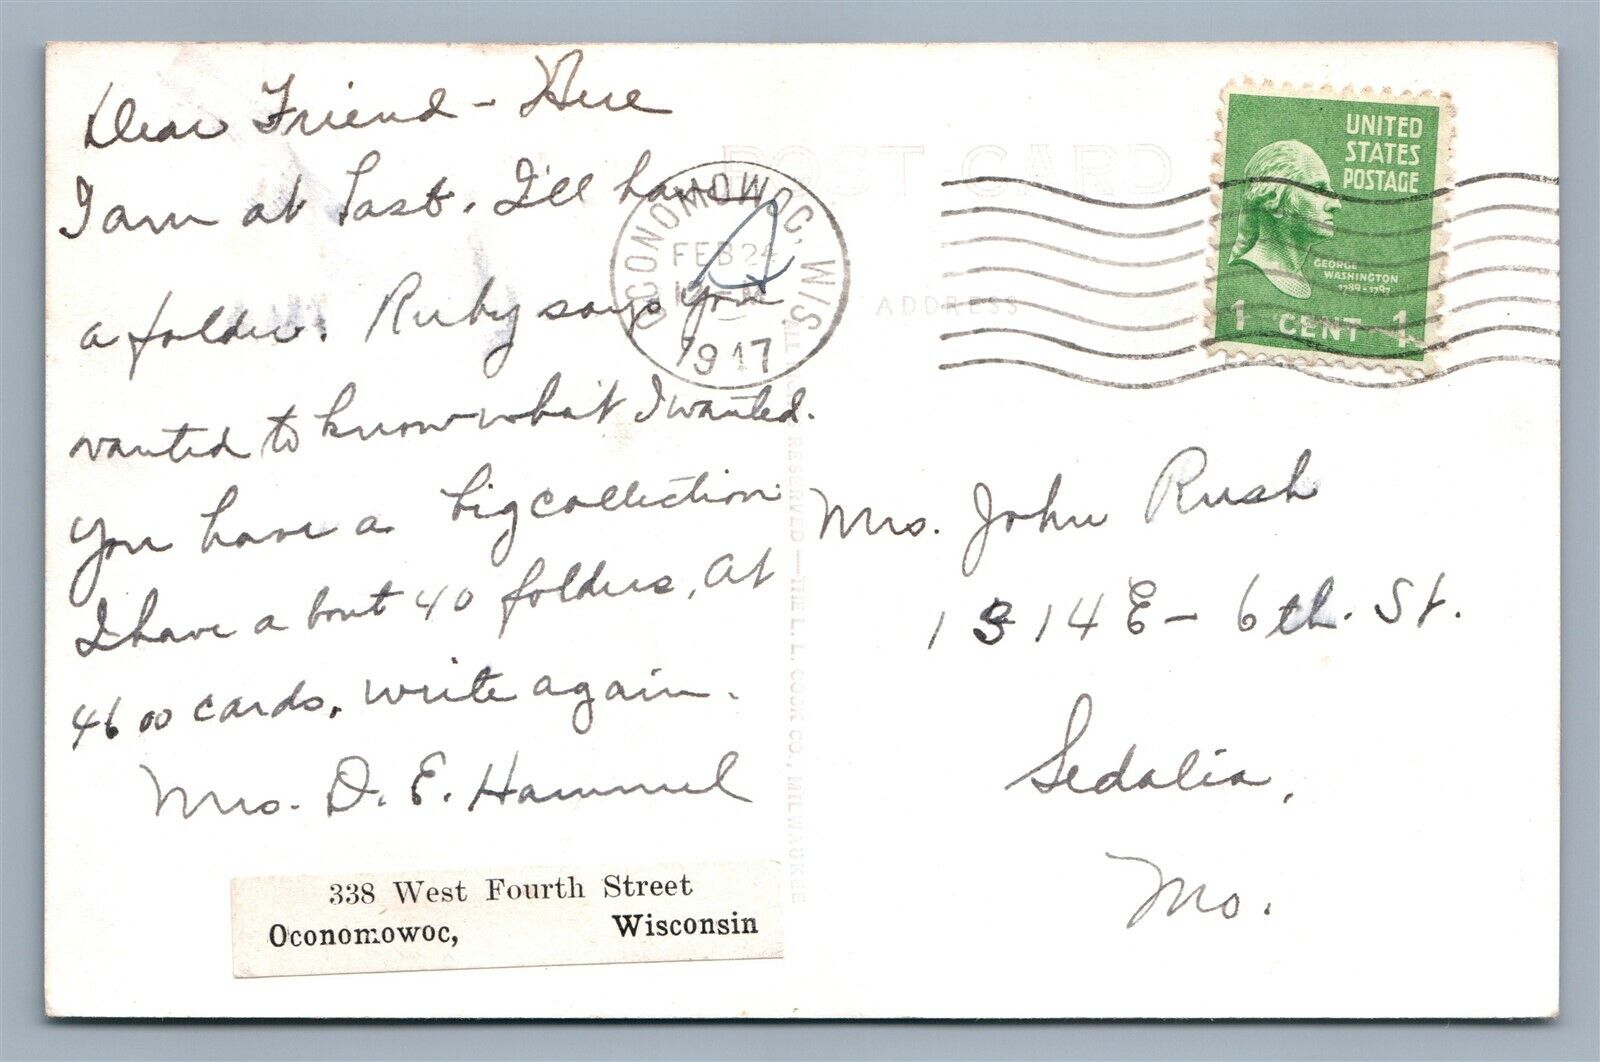 Dear Friend - Here
I am at last. I'll have
a folder. Ruby says you
wanted to know what I wanted.
You have a big collection
I have about 40 folders, at
4600 cards. write again.
Mrs. D. E. Hammel
338 West Fourth Street
Oconomowoc, Wisconsin
POST CARD
OCONOMOWOC, WIS.
FEB 24
1947
ADDRESS
UNITED
STATES
POSTAGE
GEORGE
WASHINGTON
1789-1797
1 CENT 1
ALL RIGHTS RESERVED-THE L. L. COOK CO., MILWAUKEE
Mrs. John Rush
1314 E- 6th. St.
Sedalia,
Mo.